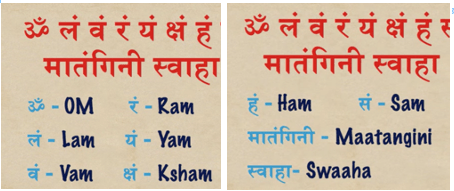 ॐ लं वं रं यं क्षं हं
मातंगिनी स्वाहा
ॐ - OM रं - Ram
लं - Lam यं - Yam
वं - Vam क्षं - Ksham
ॐ लं वं रं यं क्षं हं
मातंगिनी स्वाहा
हं - Ham सं - Sam
मातंगिनी - Maatangini
स्वाहा- Swaaha